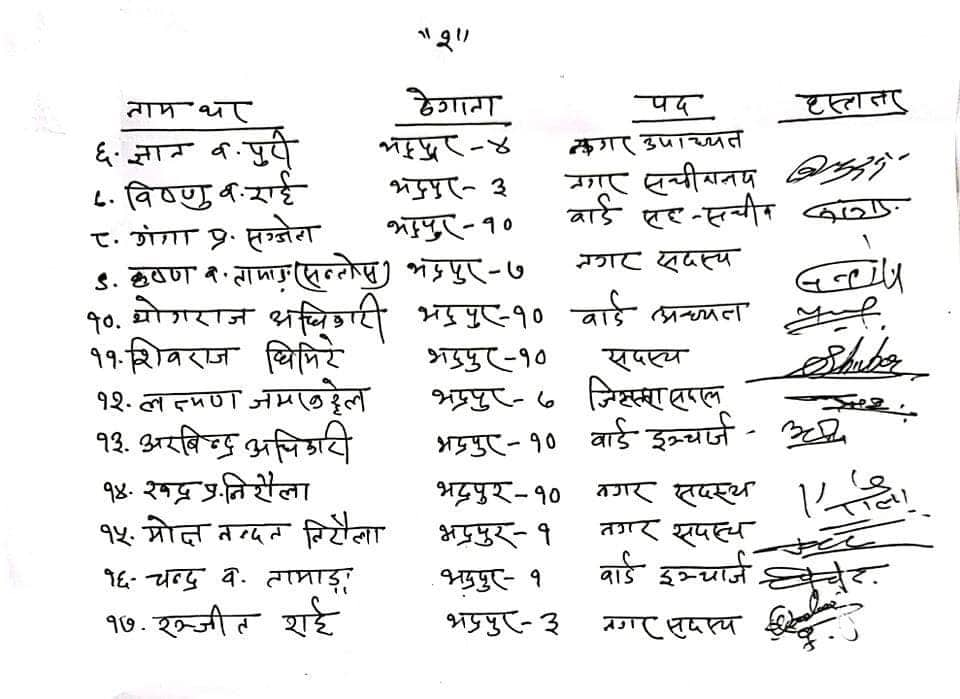 "२"
नाम थर ठेगाना पद हस्ताक्षर
६. ज्ञान ब. पुरी भद्रपुर - ४ नगर उपाध्यक्ष
८. विष्णु ब. राई भद्रपुर - ३ नगर सचीवालय
८. गंगा प्र. भद्रपुर - १० वार्ड सह-सचीव
९. कृष्ण ब. तामाङ (सन्तोष) भद्रपुर - ७ नगर सदस्य
१०. योगराज अधिकारी भद्रपुर - १० वार्ड अध्यक्ष
११. शिवराज घिमिरे भद्रपुर - १० सदस्य
१२. लक्ष्मण जमरकट्टेल भद्रपुर - ७
१३. अरबिन्द्र अधिकारी भद्रपुर - १० वार्ड इन्चार्ज -
१४. रुद्र प्र. निरौला भद्रपुर - १० नगर सदस्य
१५. मोद नन्दन निरौला भद्रपुर - १ नगर सदस्य
१६. चन्द्र ब. तामाङ भद्रपुर - १ वार्ड इन्चार्ज
१७. रन्जीत राई भद्रपुर - ३ नगर सदस्य